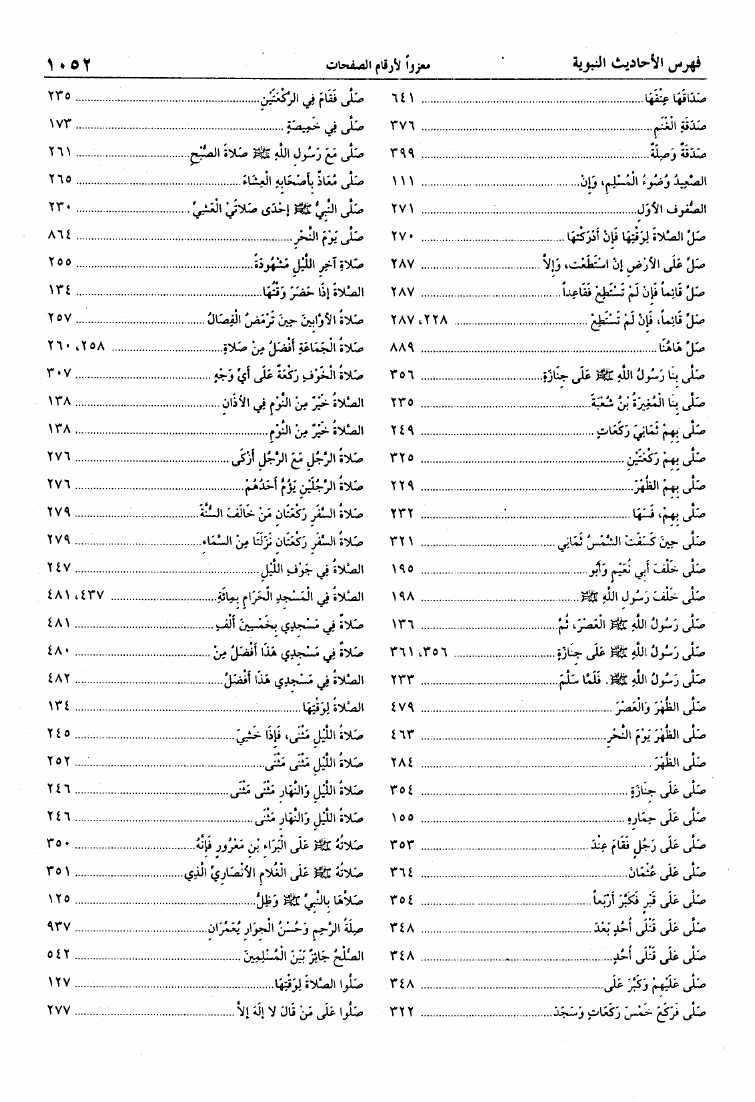 فهرس الأحاديث النبوية
معزواً لأرقام الصفحات
١٠٥٢
صَدَاقَهَا عِتْقَهَا ........ ٦٤١
صَدَقَةِ الْغَنَمِ ........ ٣٧٦
صَدَقَةٌ وَصِلَةٌ ........ ٣٩٩
الصَّعِيدُ وُضُوءُ الْمُسْلِمِ، وَإِنْ ........ ١١١
الصُّفوف الأوَلِ ........ ٢٧١
صَلِّ الصَّلاةَ لِوَقْتِهَا فَإِنْ أَدْرَكْتَهَا ........ ٢٧٠
صَلِّ عَلَى الأَرْضِ إِنْ اسْتَطَعْتَ، وَإِلاَّ ........ ٢٨٧
صَلِّ قَائِماً فَإِنْ لَمْ تَسْتَطِعْ فَقَاعِداً ........ ٢٨٧
صَلِّ قَائِماً، فَإِنْ لَمْ تَسْتَطِعْ ........ ٢٢٨، ٢٨٧
صَلِّ هَاهُنَا ........ ٨٨٩
صَلَّى بِنَا رَسُولُ اللَّهِ ﷺ عَلَى جِنَازَةٍ ........ ٣٥٦
صَلَّى بِنَا الْمُغِيرَةُ بْنُ شُعْبَةَ ........ ٢٣٥
صَلَّى بِهِمْ ثَمَانِيَ رَكَعَاتٍ ........ ٢٤٩
صَلَّى بِهِمْ رَكْعَتَيْنِ ........ ٣٢٥
صَلَّى بِهِمُ الظُّهْرَ ........ ٢٢٩
صَلَّى بِهِمْ، فَسَهَا ........ ٢٣٢
صَلَّى حِينَ كَسَفَتْ الشَّمْسُ ثَمَانِيَ ........ ٣٢١
صَلَّى خَلْفَ أَبِي نُعَيْمٍ وَأَبُو ........ ١٩٥
صَلَّى خَلْفَ رَسُولِ اللَّهِ ﷺ ........ ١٩٨
صَلَّى رَسُولُ اللَّهِ ﷺ الْعَصْرَ، ثُمَّ ........ ١٣٦
صَلَّى رَسُولُ اللَّهِ ﷺ عَلَى جِنَازَةٍ ........ ٣٥٦، ٣٦١
صَلَّى رَسُولُ اللَّهِ ﷺ. فَلَمَّا سَلَّمَ ........ ٢٣٣
صَلَّى الظُّهْرَ وَالْعَصْرَ ........ ٤٧٩
صَلَّى الظُّهْرَ يَوْمَ النَّحْرِ ........ ٤٦٣
صَلَّى الظُّهْرَ ........ ٢٨٤
صَلَّى عَلَى جِنَازَةٍ ........ ٣٥٤
صَلَّى عَلَى حِمَارِهِ ........ ١٥٥
صَلَّى عَلَى رَجُلٍ فَقَامَ عِنْدَ ........ ٣٥٣
صَلَّى عَلَى عُثْمَانَ ........ ٣٦٤
صَلَّى عَلَى قَبْرٍ فَكَبَّرَ أَرْبَعاً ........ ٣٥٤
صَلَّى عَلَى قَتْلَى أُحُدٍ بَعْدَ ........ ٣٤٨
صَلَّى عَلَى قَتْلَى أُحُدٍ ........ ٣٤٨
صَلَّى عَلَيْهِمْ وَكَبَّرَ عَلَى ........ ٣٤٨
صَلَّى فَرَكَعَ خَمْسَ رَكَعَاتٍ وَسَجَدَ ........ ٣٢٢
صَلَّى فَقَامَ فِي الرَّكْعَتَيْنِ ........ ٢٣٥
صَلَّى فِي خَمِيصَةٍ ........ ١٧٣
صَلَّى مَعَ رَسُولِ اللَّهِ ﷺ صَلاةَ الصُّبْحِ ........ ٢٦١
صَلَّى مُعَاذٌ بِأَصْحَابِهِ الْعِشَاءَ ........ ٢٦٥
صَلَّى النَّبِيُّ ﷺ إِحْدَى صَلاتَيْ الْعَشِيِّ ........ ٢٣٠
صَلَّى يَوْمَ النَّحْرِ ........ ٨٦٤
صَلاةِ آخِرِ اللَّيْلِ مَشْهُودَةٌ ........ ٢٥٥
الصَّلاةُ إِذَا حَضَرَ وَقْتُهَا ........ ١٣٤
صَلاةُ الأَوَّابِينَ حِينَ تَرْمَضُ الْفِصَالُ ........ ٢٥٧
صَلاةُ الْجَمَاعَةِ أَفْضَلُ مِنْ صَلاةِ ........ ٢٥٨، ٢٦٠
صَلاةُ الْخَوْفِ رَكْعَةٌ عَلَى أَيِّ وَجْهٍ ........ ٣٠٧
الصَّلاةُ خَيْرٌ مِنَ النَّوْمِ فِي الأَذَانِ ........ ١٣٨
الصَّلاةُ خَيْرٌ مِنَ النَّوْمِ ........ ١٣٨
صَلاةُ الرَّجُلِ مَعَ الرَّجُلِ أَزْكَى ........ ٢٧٦
صَلاةُ الرَّجُلَيْنِ يَؤُمُّ أَحَدُهُمْ ........ ٢٧٦
صَلاةُ السَّفَرِ رَكْعَتَانِ مَنْ خَالَفَ السُّنَّةَ ........ ٢٧٩
صَلاةُ السَّفَرِ رَكْعَتَانِ نَزَلَتَا مِنَ السَّمَاءِ ........ ٢٧٩
الصَّلاةُ فِي جَوْفِ اللَّيْلِ ........ ٢٤٧
الصَّلاةُ فِي الْمَسْجِدِ الْحَرَامِ بِمِائَةِ ........ ٤٣٧، ٤٨١
صَلاةٌ فِي مَسْجِدِي بِخَمْسِينَ أَلْفِ ........ ٤٨١
صَلاةٌ فِي مَسْجِدِي هَذَا أَفْضَلُ مِنْ ........ ٤٨٠
الصَّلاةُ فِي مَسْجِدِي هَذَا أَفْضَلُ ........ ٤٨٢
الصَّلاةُ لِوَقْتِهَا ........ ١٣٤
صَلاةُ اللَّيْلِ مَثْنَى، فَإِذَا خَشِيَ ........ ٢٤٥
صَلاةُ اللَّيْلِ مَثْنَى مَثْنَى ........ ٢٥٢
صَلاةُ اللَّيْلِ وَالنَّهَارِ مَثْنَى مَثْنَى ........ ٢٤٦
صَلاةُ اللَّيْلِ وَالنَّهَارِ مَثْنَى ........ ٢٤٦
صَلاتُهُ ﷺ عَلَى الْبَرَاءِ بْنِ مَعْرُورٍ فَإِنَّهُ ........ ٣٥٠
صَلاتُهُ ﷺ عَلَى الْغُلامِ الأَنْصَارِيِّ الَّذِي ........ ٣٥١
صَلاَّهَا بِالنَّبِيِّ ﷺ وَظِلُّ ........ ١٢٥
صِلَةُ الرَّحِمِ وَحُسْنُ الْجِوَارِ يُعَمِّرَانِ ........ ٩٣٧
الصُّلْحُ جَائِزٌ بَيْنَ الْمُسْلِمِينَ ........ ٥٤٢
صَلُّوا الصَّلاةَ لِوَقْتِهَا ........ ١٢٧
صَلُّوا عَلَى مَنْ قَالَ لا إِلَهَ إِلاَّ ........ ٢٧٧